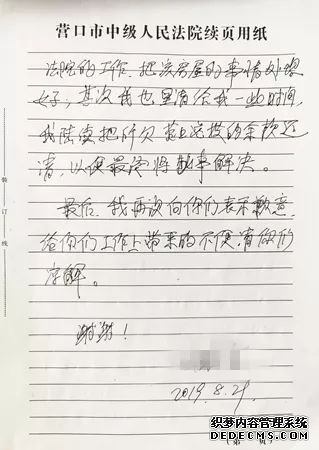 营口市中级人民法院续页用纸
法院的工作,把该房屋的事情处理
好,其次我也望请给我一些时间,
我陆续把所欠营口建设的余款还
清,以便最终将此事解决。
最后,我再次向你们表示歉意,
给你们工作上带来的不便,请你们
谅解。
谢谢!
2019.8.29.
装订线
(第 页)
织梦内容管理系统
DEDECMS.COM